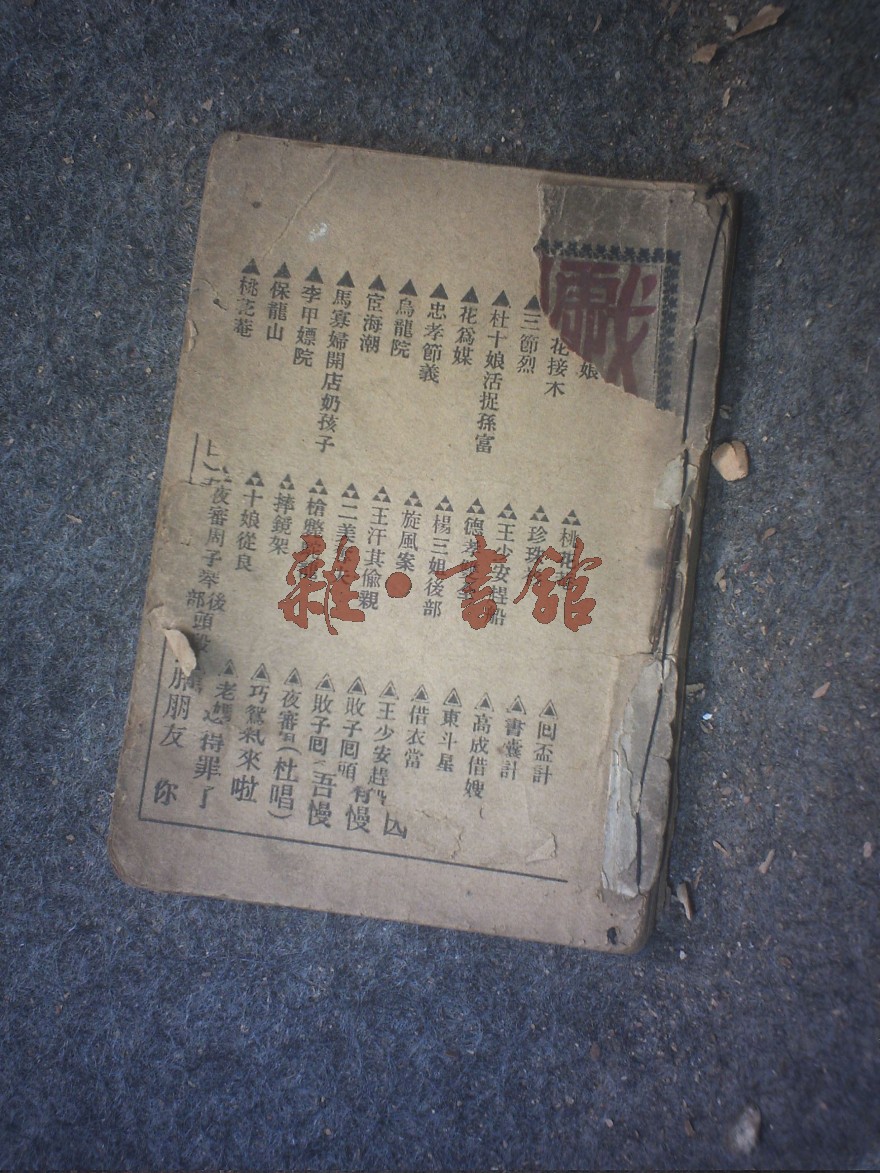 戲
娘
花接木
三節烈
杜十娘活捉孫富
花爲媒
忠孝節義
烏龍院
宦海潮
馬寡婦開店奶孩子
李甲嫖院
保龍山
桃花菴
桃花
珍珠
王少安趕船
德孝
楊三姐後部
旋風案
王汗其偸親
二美
槍斃
摔鏡架
十娘從良
夜審周子琴後部
頭
回盃計
書囊計
高成借嫂
東斗星
借衣當
王少安趕
敗子回頭
敗子回
夜審
巧鴛
老媽
因
有慢
吾慢
(杜唱)
氣來啦
得罪了
朋友 你
雜·書館